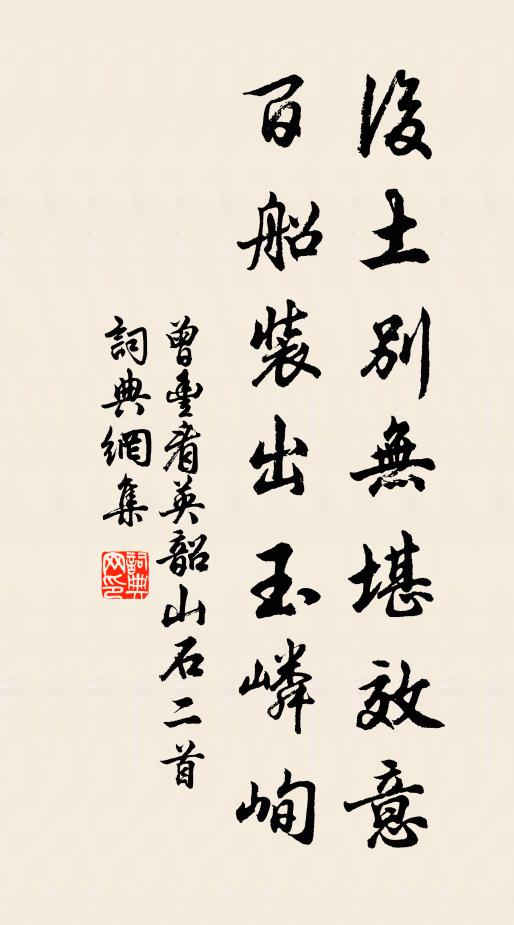 後土別無堪效意
百船裝出玉嶙峋
曾豐看英韶山石二首
詞典網集
詞典网印